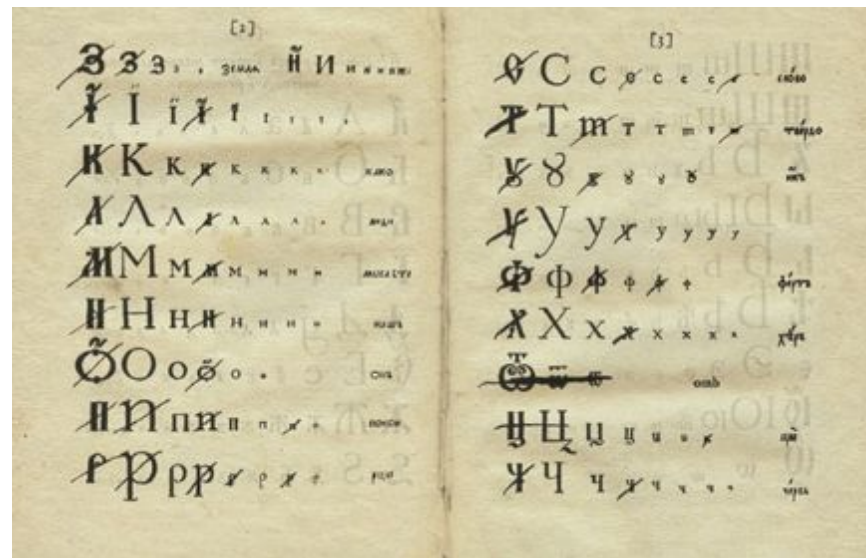 [2]
З З З з з земля Й И и и и
Ї Ї ї ї ї ї ї ї ї
К К к к к к к к како
Л Л л л л л л л люди
М М м м м м м м мыслѣте
Н Н н н н н н н нашъ
Ѻ О о ѻ о о онъ
П П п п п п п п покои
Р Р р р р р р р рцы
[3]
С С с с с с с с слово
Т Т т т т т т т твердо
Ꙋ Ꙋ ꙋ ꙋ ꙋ ꙋ икъ
У У у у у у у у
Ф ф ф ф ф ф фертъ
Х Х х х х х х х хѣръ
Ѿ ѿ ѿ отъ
Ц Ц ц ц ц ц ц цы
Ч Ч ч ч ч ч ч ч червь